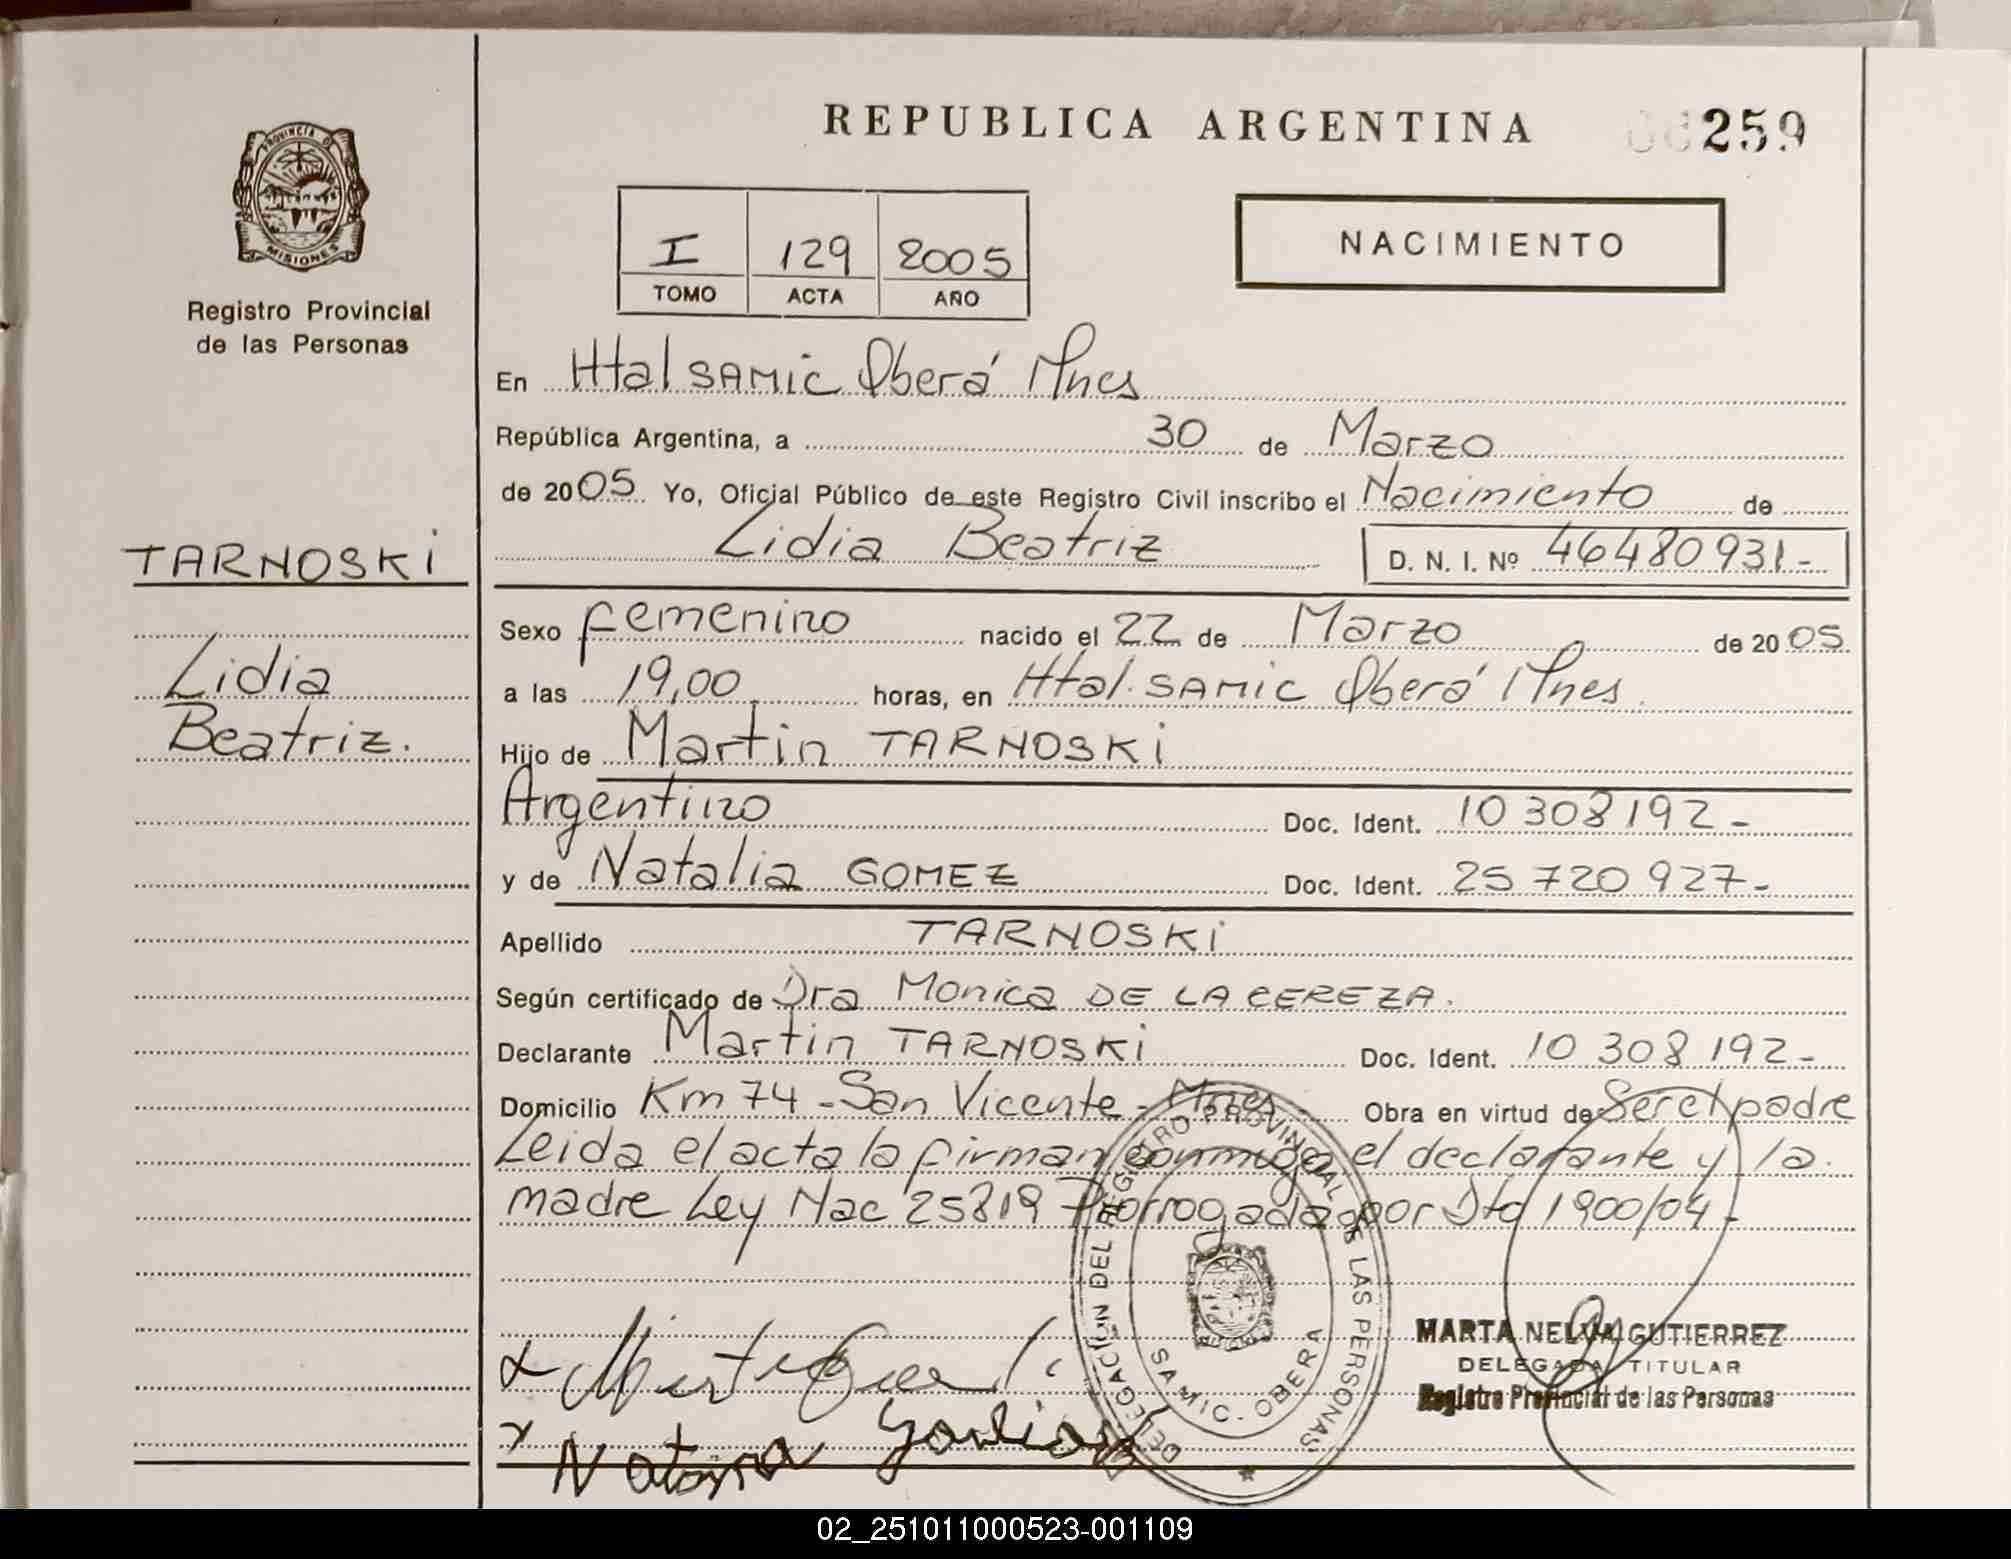 REPUBLICA ARGENTINA
259
PROVINCIA DE
MISIONES
Registro Provincial
de las Personas
I 129 2005
TOMO ACTA AÑO
NACIMIENTO
En Htal SAMIC Oberá Mnes
República Argentina, a 30 de Marzo
de 2005 Yo, Oficial Público de este Registro Civil inscribo el Nacimiento de
Lidia Beatriz D. N. I. Nº 46480931-
TARNOSKI
Lidia
Beatriz.
Sexo femenino nacido el 22 de Marzo de 2005
a las 19,00 horas, en Htal. SAMIC Oberá Mnes.
Hijo de Martin TARNOSKI
Argentino Doc. Ident. 10 308 192-
y de Natalia GOMEZ Doc. Ident. 25 720 927-
Apellido TARNOSKI
Según certificado de Dra Monica DE LA CEREZA.
Declarante Martin TARNOSKI Doc. Ident. 10 308 192-
Domicilio Km 74 - San Vicente - Mnes - Obra en virtud de Ser el padre
Leida el acta la firman conmigo el declarante y la
madre Ley Nac 25819 Prorrogada por Dto 1900/04-
DELEGACIÓN DEL REGISTRO PROVINCIAL DE LAS PERSONAS
SAMIC. OBERA
MARTA NELVA GUTIERREZ
DELEGADA TITULAR
Registro Provincial de las Personas
02_251011000523-001109